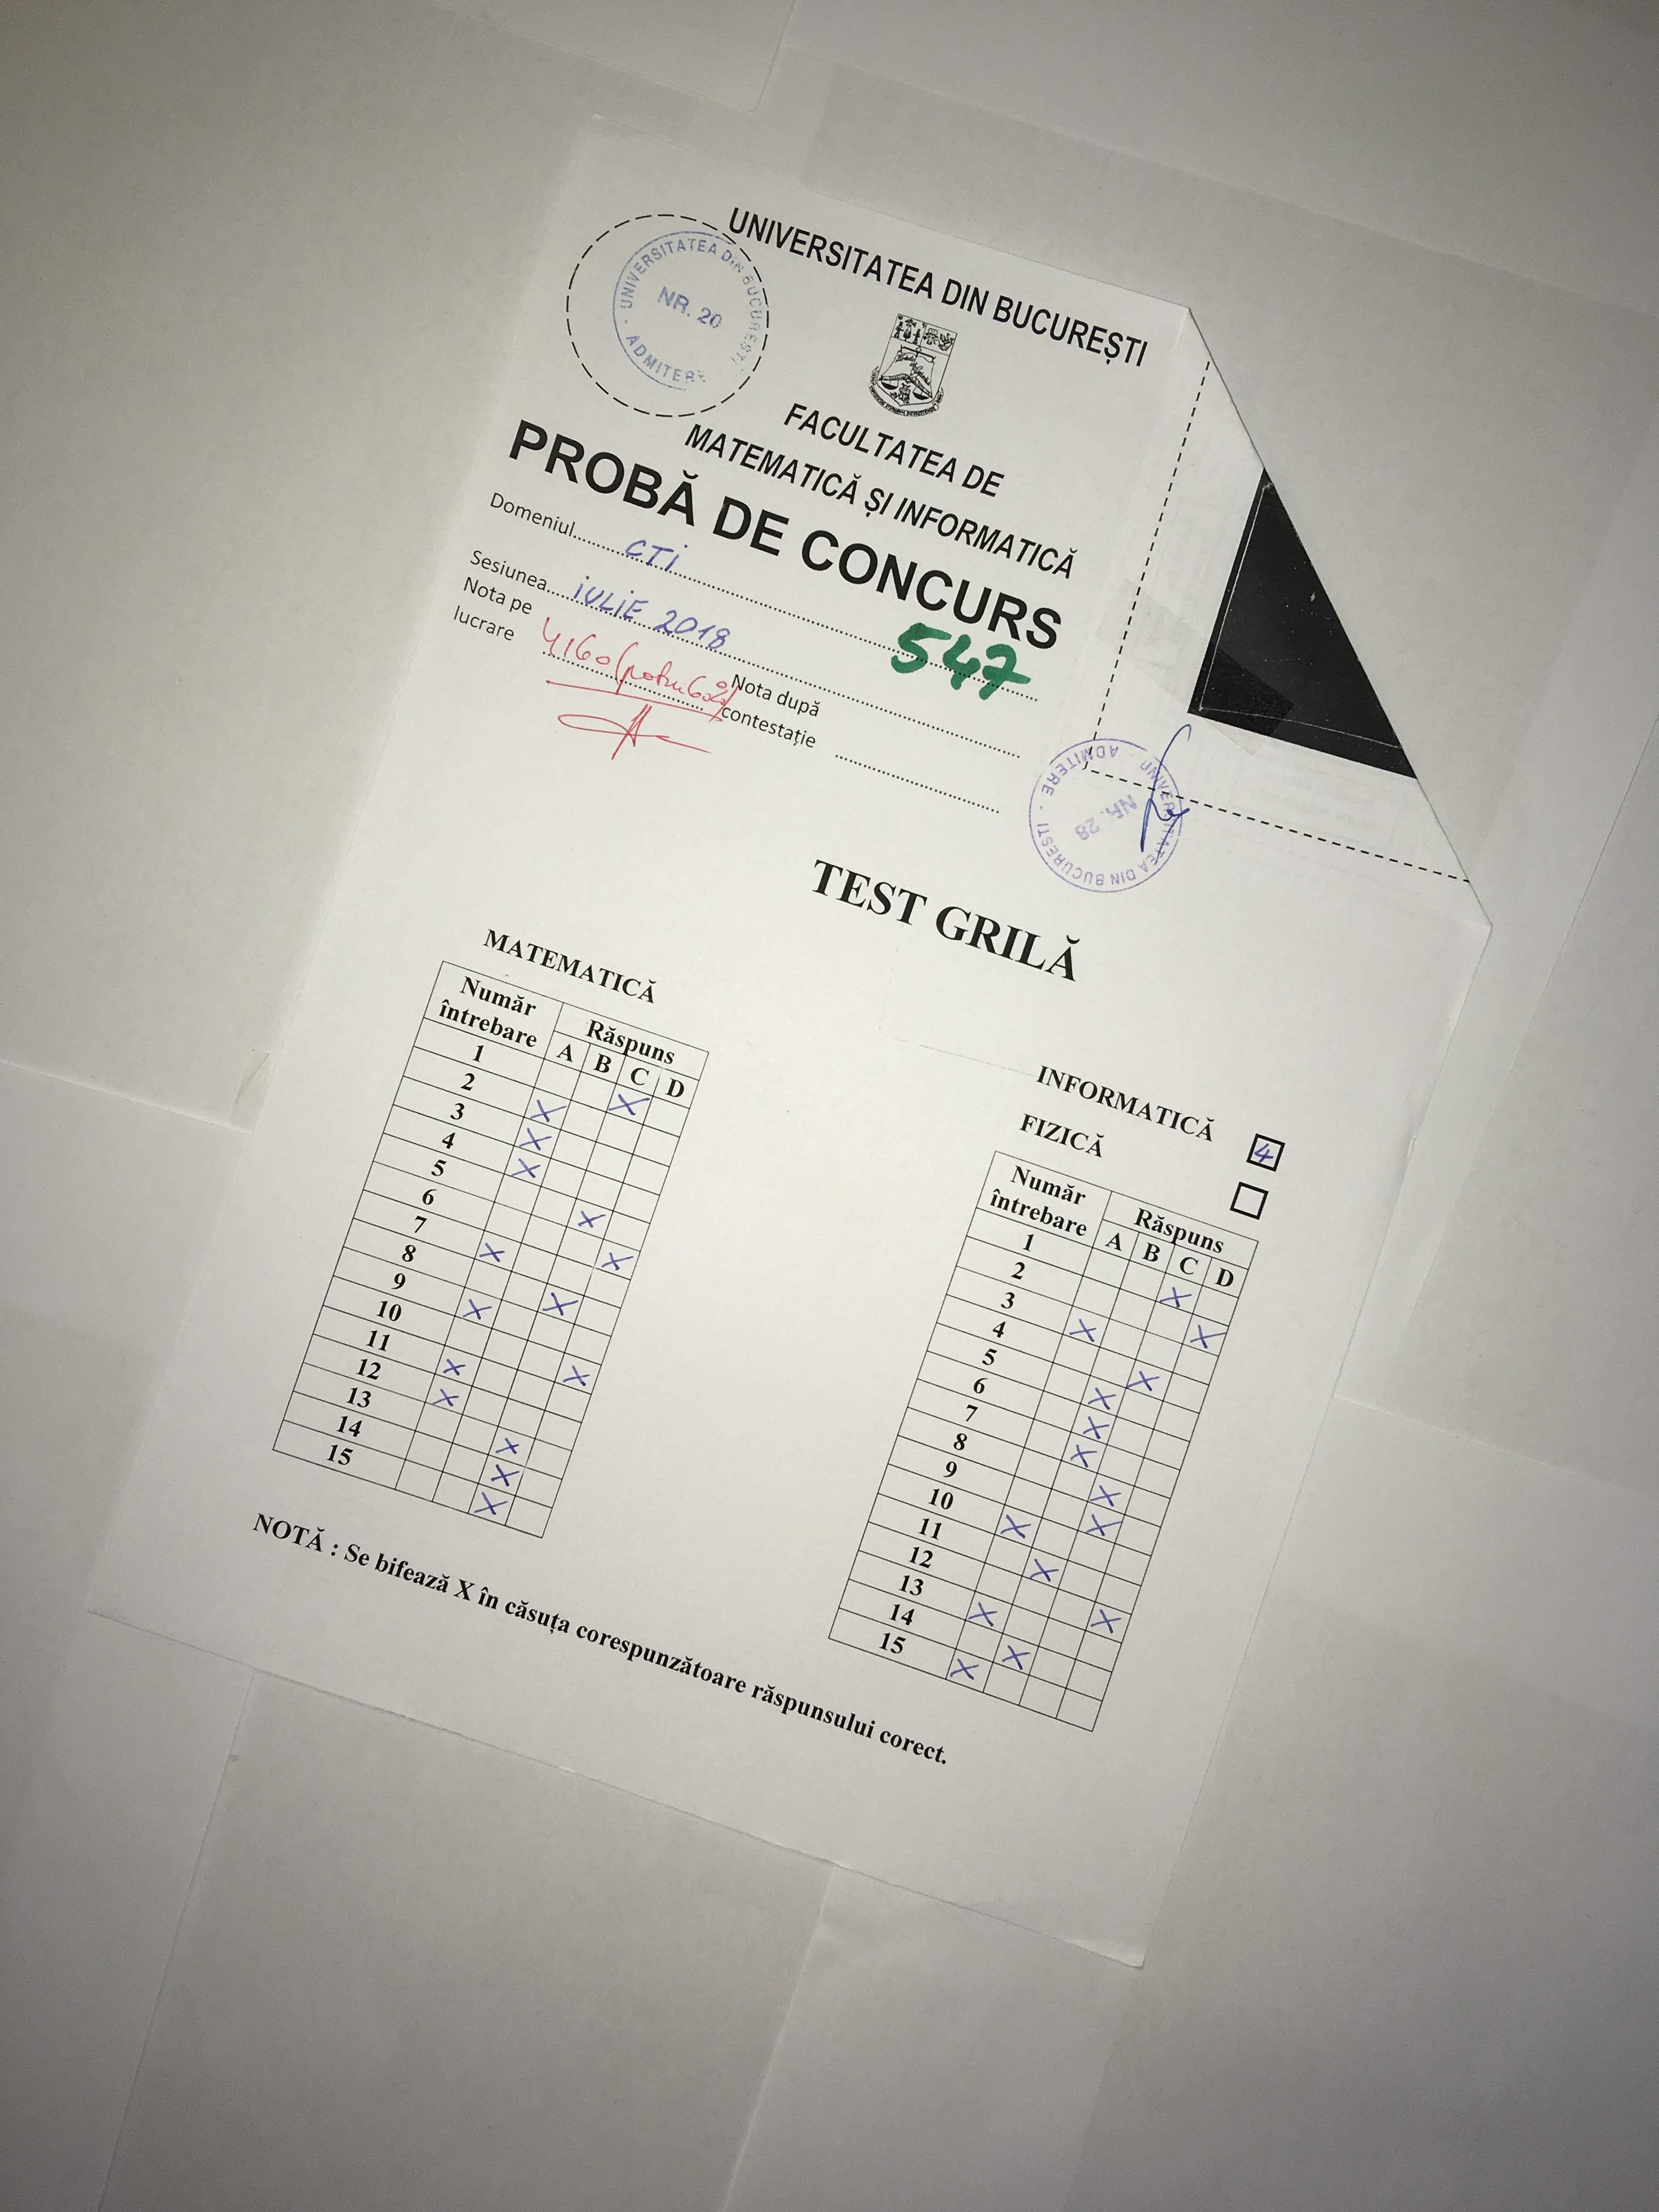 UNIVERSITATEA DIN BUCUREȘTI
UNIVERSITATEA DIN BUCUREȘTI · ADMITERE ·
NR. 20
FACULTATEA DE
MATEMATICĂ ȘI INFORMATICĂ
PROBĂ DE CONCURS
Domeniul CTI
547
Sesiunea IULIE 2018
Nota pe lucrare 4,60
Nota după contestație
UNIVERSITATEA DIN BUCUREȘTI · ADMITERE ·
NR. 28
TEST GRILĂ
MATEMATICĂ
Număr întrebare Răspuns
A B C D
1 X
2 X
3 X
4 X
5 X
6 X
7 X
8 X
9 X
10 X
11 X
12 X
13 X
14 X
15 X
INFORMATICĂ 4
FIZICĂ
Număr întrebare Răspuns
A B C D
1 X
2 X
3 X
4 X
5 X
6 X
7 X
8 X
9 X
10 X
11 X
12 X
13 X
14 X
15 X
NOTĂ : Se bifează X în căsuța corespunzătoare răspunsului corect.